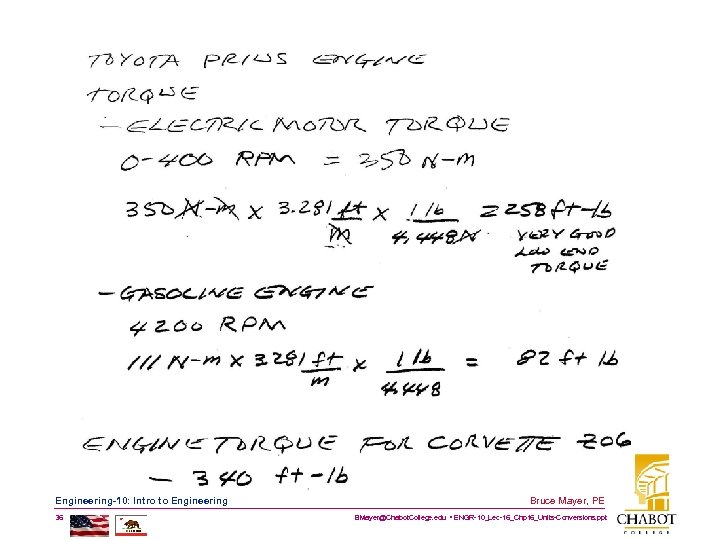 TOYOTA PRIUS ENGINE
TORQUE
- ELECTRIC MOTOR TORQUE
0-400 RPM = 350 N-m
350 N-m x 3.281 ft/m x 1 lb/4.448 N = 258 ft-lb
VERY GOOD
LOW END
TORQUE
- GASOLINE ENGINE
4200 RPM
111 N-m x 3.281 ft/m x 1 lb/4.448 = 82 ft lb
ENGINE TORQUE FOR CORVETTE Z06
- 340 ft-lb
Engineering-10: Intro to Engineering
36
Bruce Mayer, PE
BMayer@ChabotCollege.edu • ENGR-10_Lec-16_Chp16_Units-Conversions.ppt
CHABOT
COLLEGE